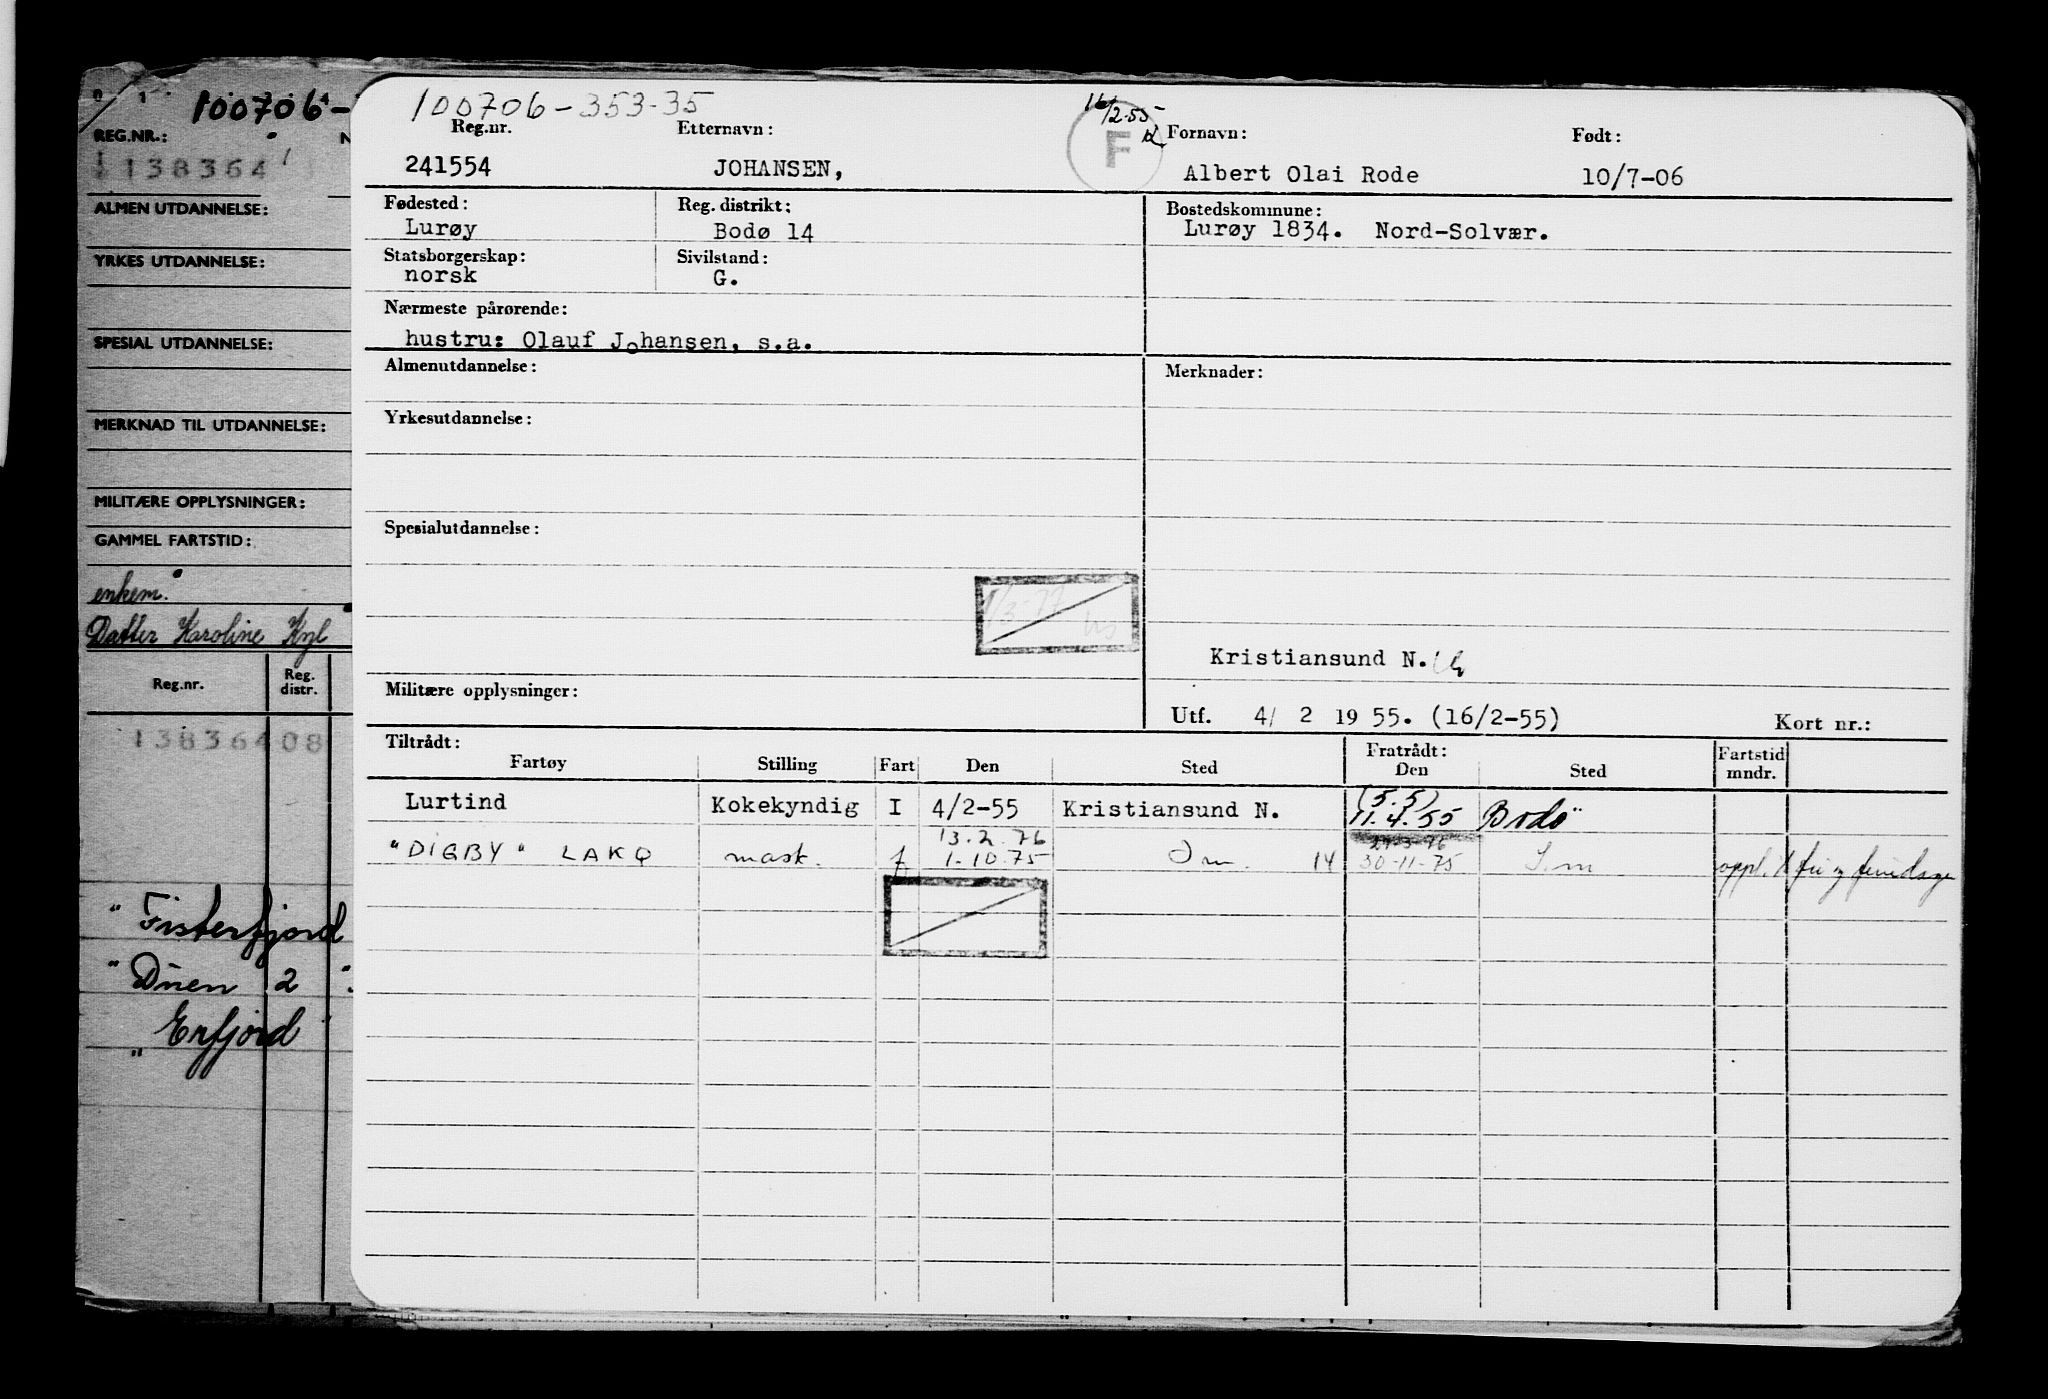 100706-
REG.NR.:
138364
ALMEN UTDANNELSE:
YRKES UTDANNELSE:
SPESIAL UTDANNELSE:
MERKNAD TIL UTDANNELSE:
MILITÆRE OPPLYSNINGER:
GAMMEL FARTSTID:
enkem.
Datter Karoline
Reg.nr. Reg. distr.
138364 08
"Fisterfjord
"Duen 2"
"Erfjord"
100706-353-35
16/2-55
Reg.nr. Etternavn: F Fornavn: Født:
241554 JOHANSEN, Albert Olai Rode 10/7-06
Fødested: Reg. distrikt: Bostedskommune:
Lurøy Bodø 14 Lurøy 1834. Nord-Solvær.
Statsborgerskap: Sivilstand:
norsk G.
Nærmeste pårørende:
hustru: Olauf Johansen, s.a.
Almenutdannelse: Merknader:
Yrkesutdannelse:
Spesialutdannelse:
1/3-77
Kristiansund N.
Militære opplysninger:
Utf. 4/ 2 19 55. (16/2-55) Kort nr.:
Tiltrådt: Fratrådt: Fartstid
Fartøy Stilling Fart Den Sted Den Sted mndr.
(5.5)
Lurtind Kokekyndig I 4/2-55 Kristiansund N. 11.4.55 Bodö
13.2.76
"DIGBY" LAKQ mask. f 1.10.75 14 30-11-75 oppl.